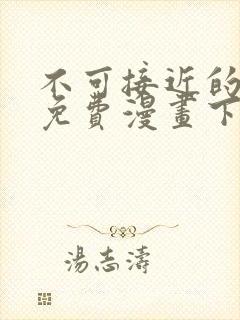 不可接近的
免費漫畫下
湯志濤